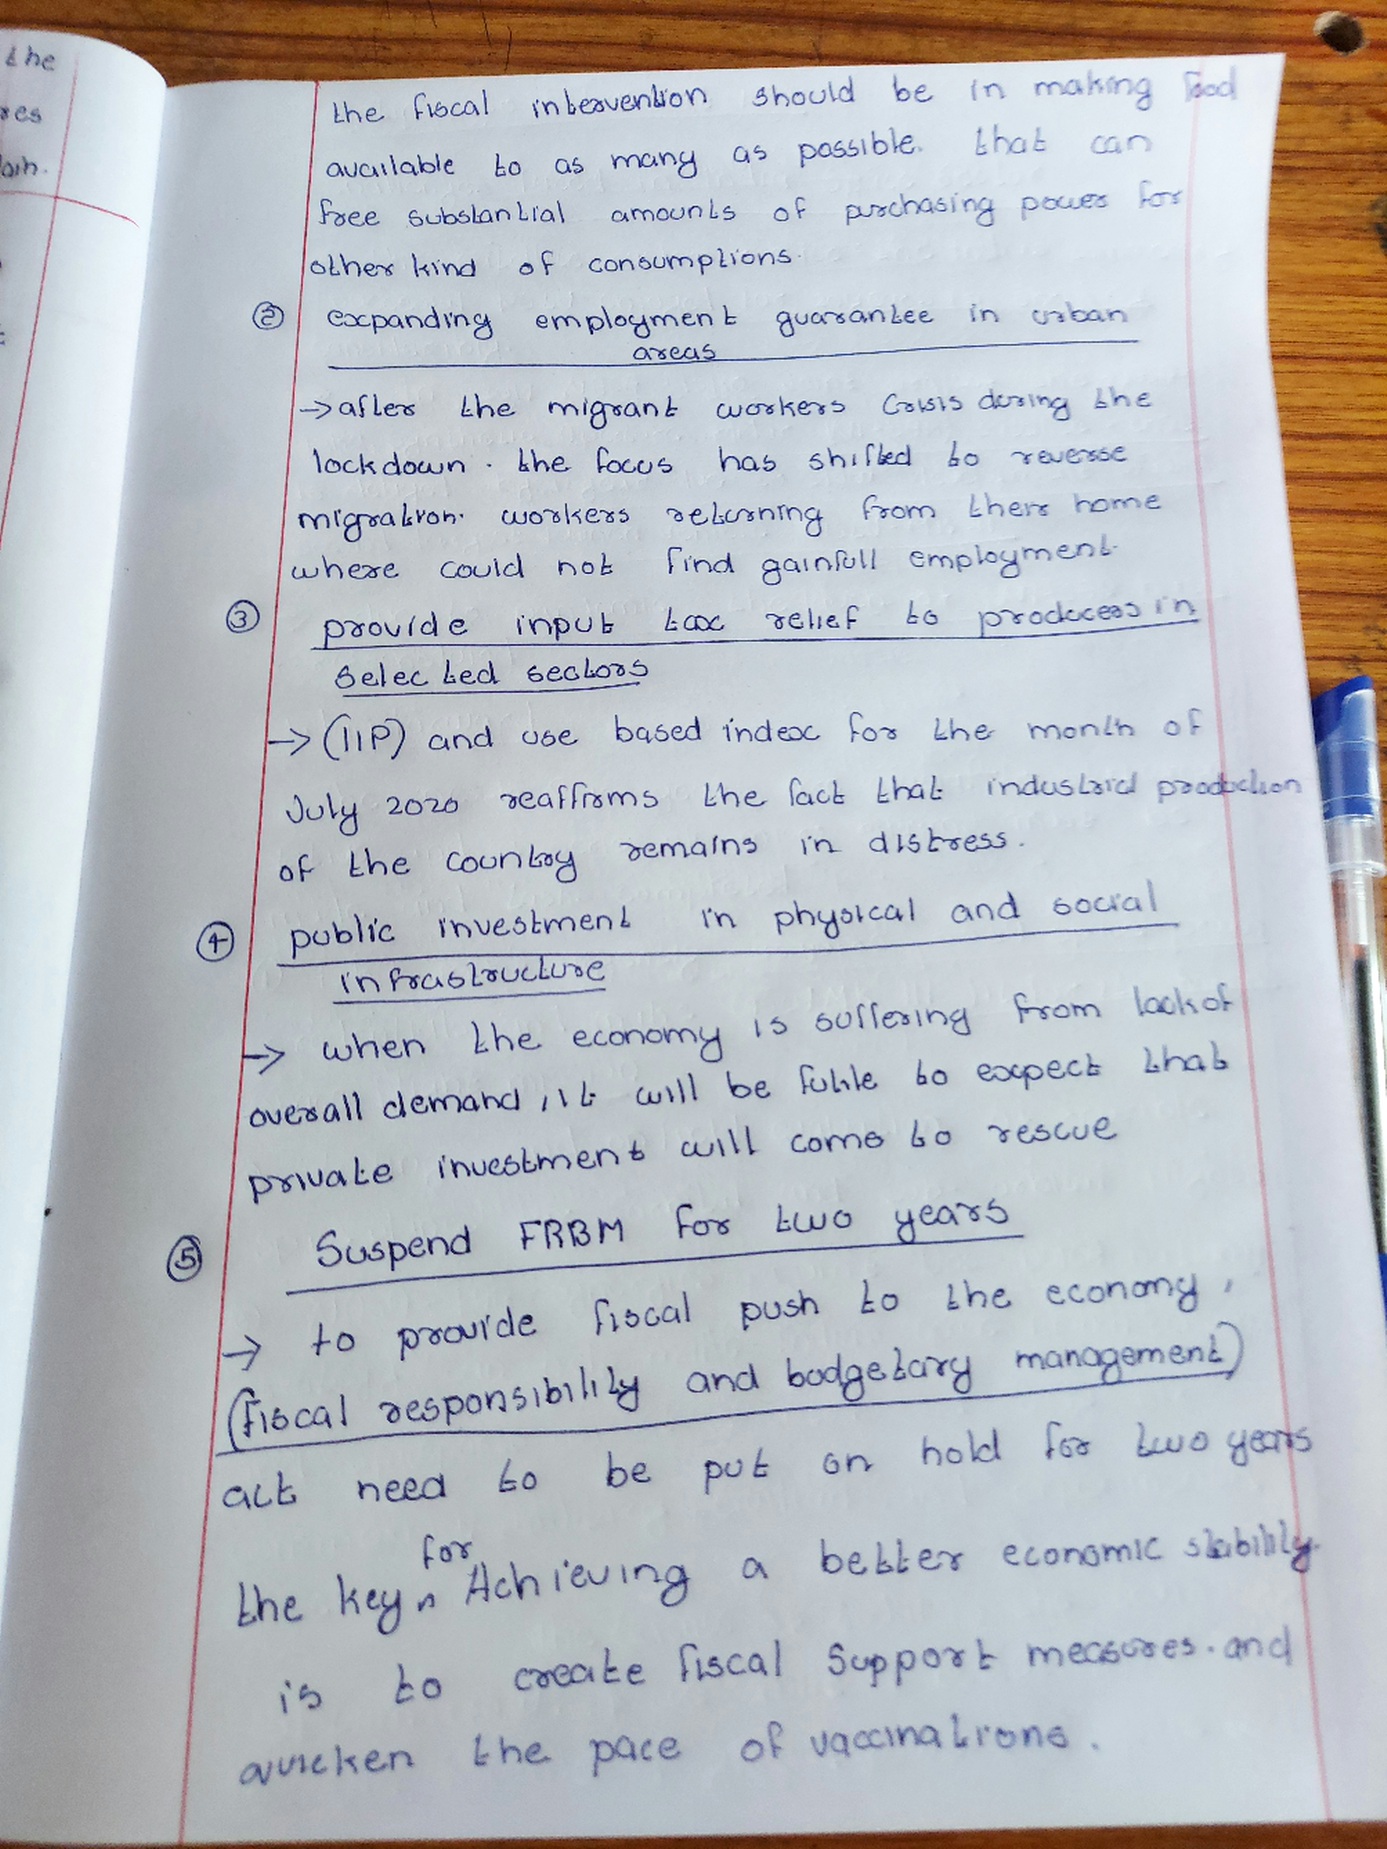 the
res
the fiscal intervention should be in making food
available to as many as possible. that can
free substantial amounts of purchasing power for
other kind of consumptions.
② expanding employment guarantee in urban
areas
→ after the migrant workers crisis during the
lockdown. the focus has shifted to reverse
migration. workers returning from there home
where could not find gainfull employment.
③ provide input tax relief to producers in
selected sectors
→ (IIP) and use based index for the month of
July 2020 reaffirms the fact that industrial production
of the country remains in distress.
④ public investment in physical and social
infrastructure
→ when the economy is suffering from lack of
overall demand, it will be futile to expect that
private investment will come to rescue
⑤ Suspend FRBM for two years
→ to provide fiscal push to the economy,
(fiscal responsibility and budgetary management)
act need to be put on hold for two years
for
the key ^ Achieving a better economic stability.
is to create fiscal support measures. and
quicken the pace of vaccinations.